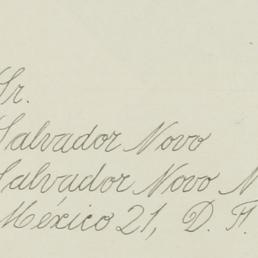 Sr.
Salvador Novo
Salvador Novo N
México 21, D. F.